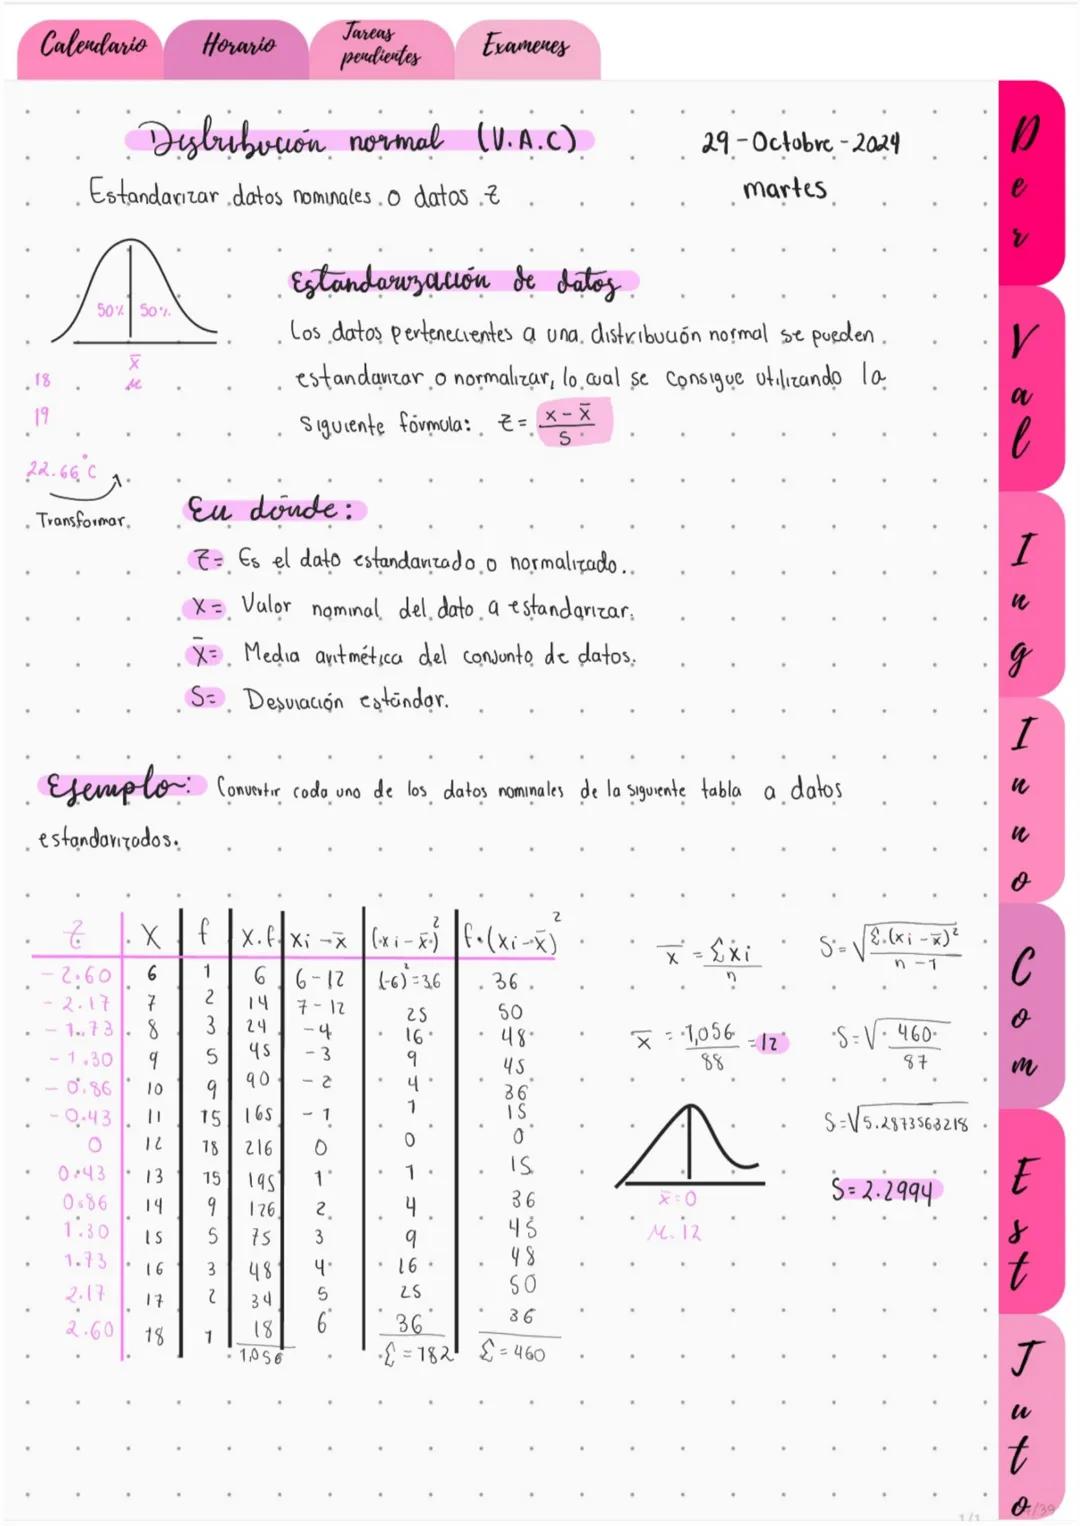 Calendario
Horario
Tareas
pendientes
Examenes
Distribución normal (V.A.C)
29-Octubre-2024
martes
Estandarizar datos nominales o datos z
50% 50%
x̄
μ
18
19
22.66°C
Transformar
Estandarización de datos
Los datos pertenecientes a una distribución normal se pueden
estandarizar o normalizar, lo cual se consigue utilizando la
siguiente fórmula: z = x - x̄ / S
En donde:
z = Es el dato estandarizado o normalizado.
x = Valor nominal del dato a estandarizar.
x̄ = Media aritmética del conjunto de datos.
S = Desviación estándar.
Ejemplo: Convertir cada uno de los datos nominales de la siguiente tabla a datos
estandarizados.
z X f X.f xi - x̄ (xi - x̄)² f.(xi - x̄)²
-2.60 6 1 6 6-12 (-6)²=36 36
-2.17 7 2 14 7-12 25 50
-1.73 8 3 24 -4 16 48
-1.30 9 5 45 -3 9 45
-0.86 10 9 90 -2 4 36
-0.43 11 15 165 -1 1 15
0 12 18 216 0 0 0
0.43 13 15 195 1 1 15
0.86 14 9 126 2 4 36
1.30 15 5 75 3 9 45
1.73 16 3 48 4 16 48
2.17 17 2 34 5 25 50
2.60 18 1 18 6 36 36
1,056 Σ = 182 Σ = 460
x̄ = Σxi / n
x̄ = 1,056 / 88 = 12
x̄ = 0
μ. 12
S = √Σ.(xi - x̄)² / n - 1
S = √460 / 87
S = √5.2873563218
S = 2.2994
Der
Val
Ing
Inno
Com
Est
Juto
1/1
/39